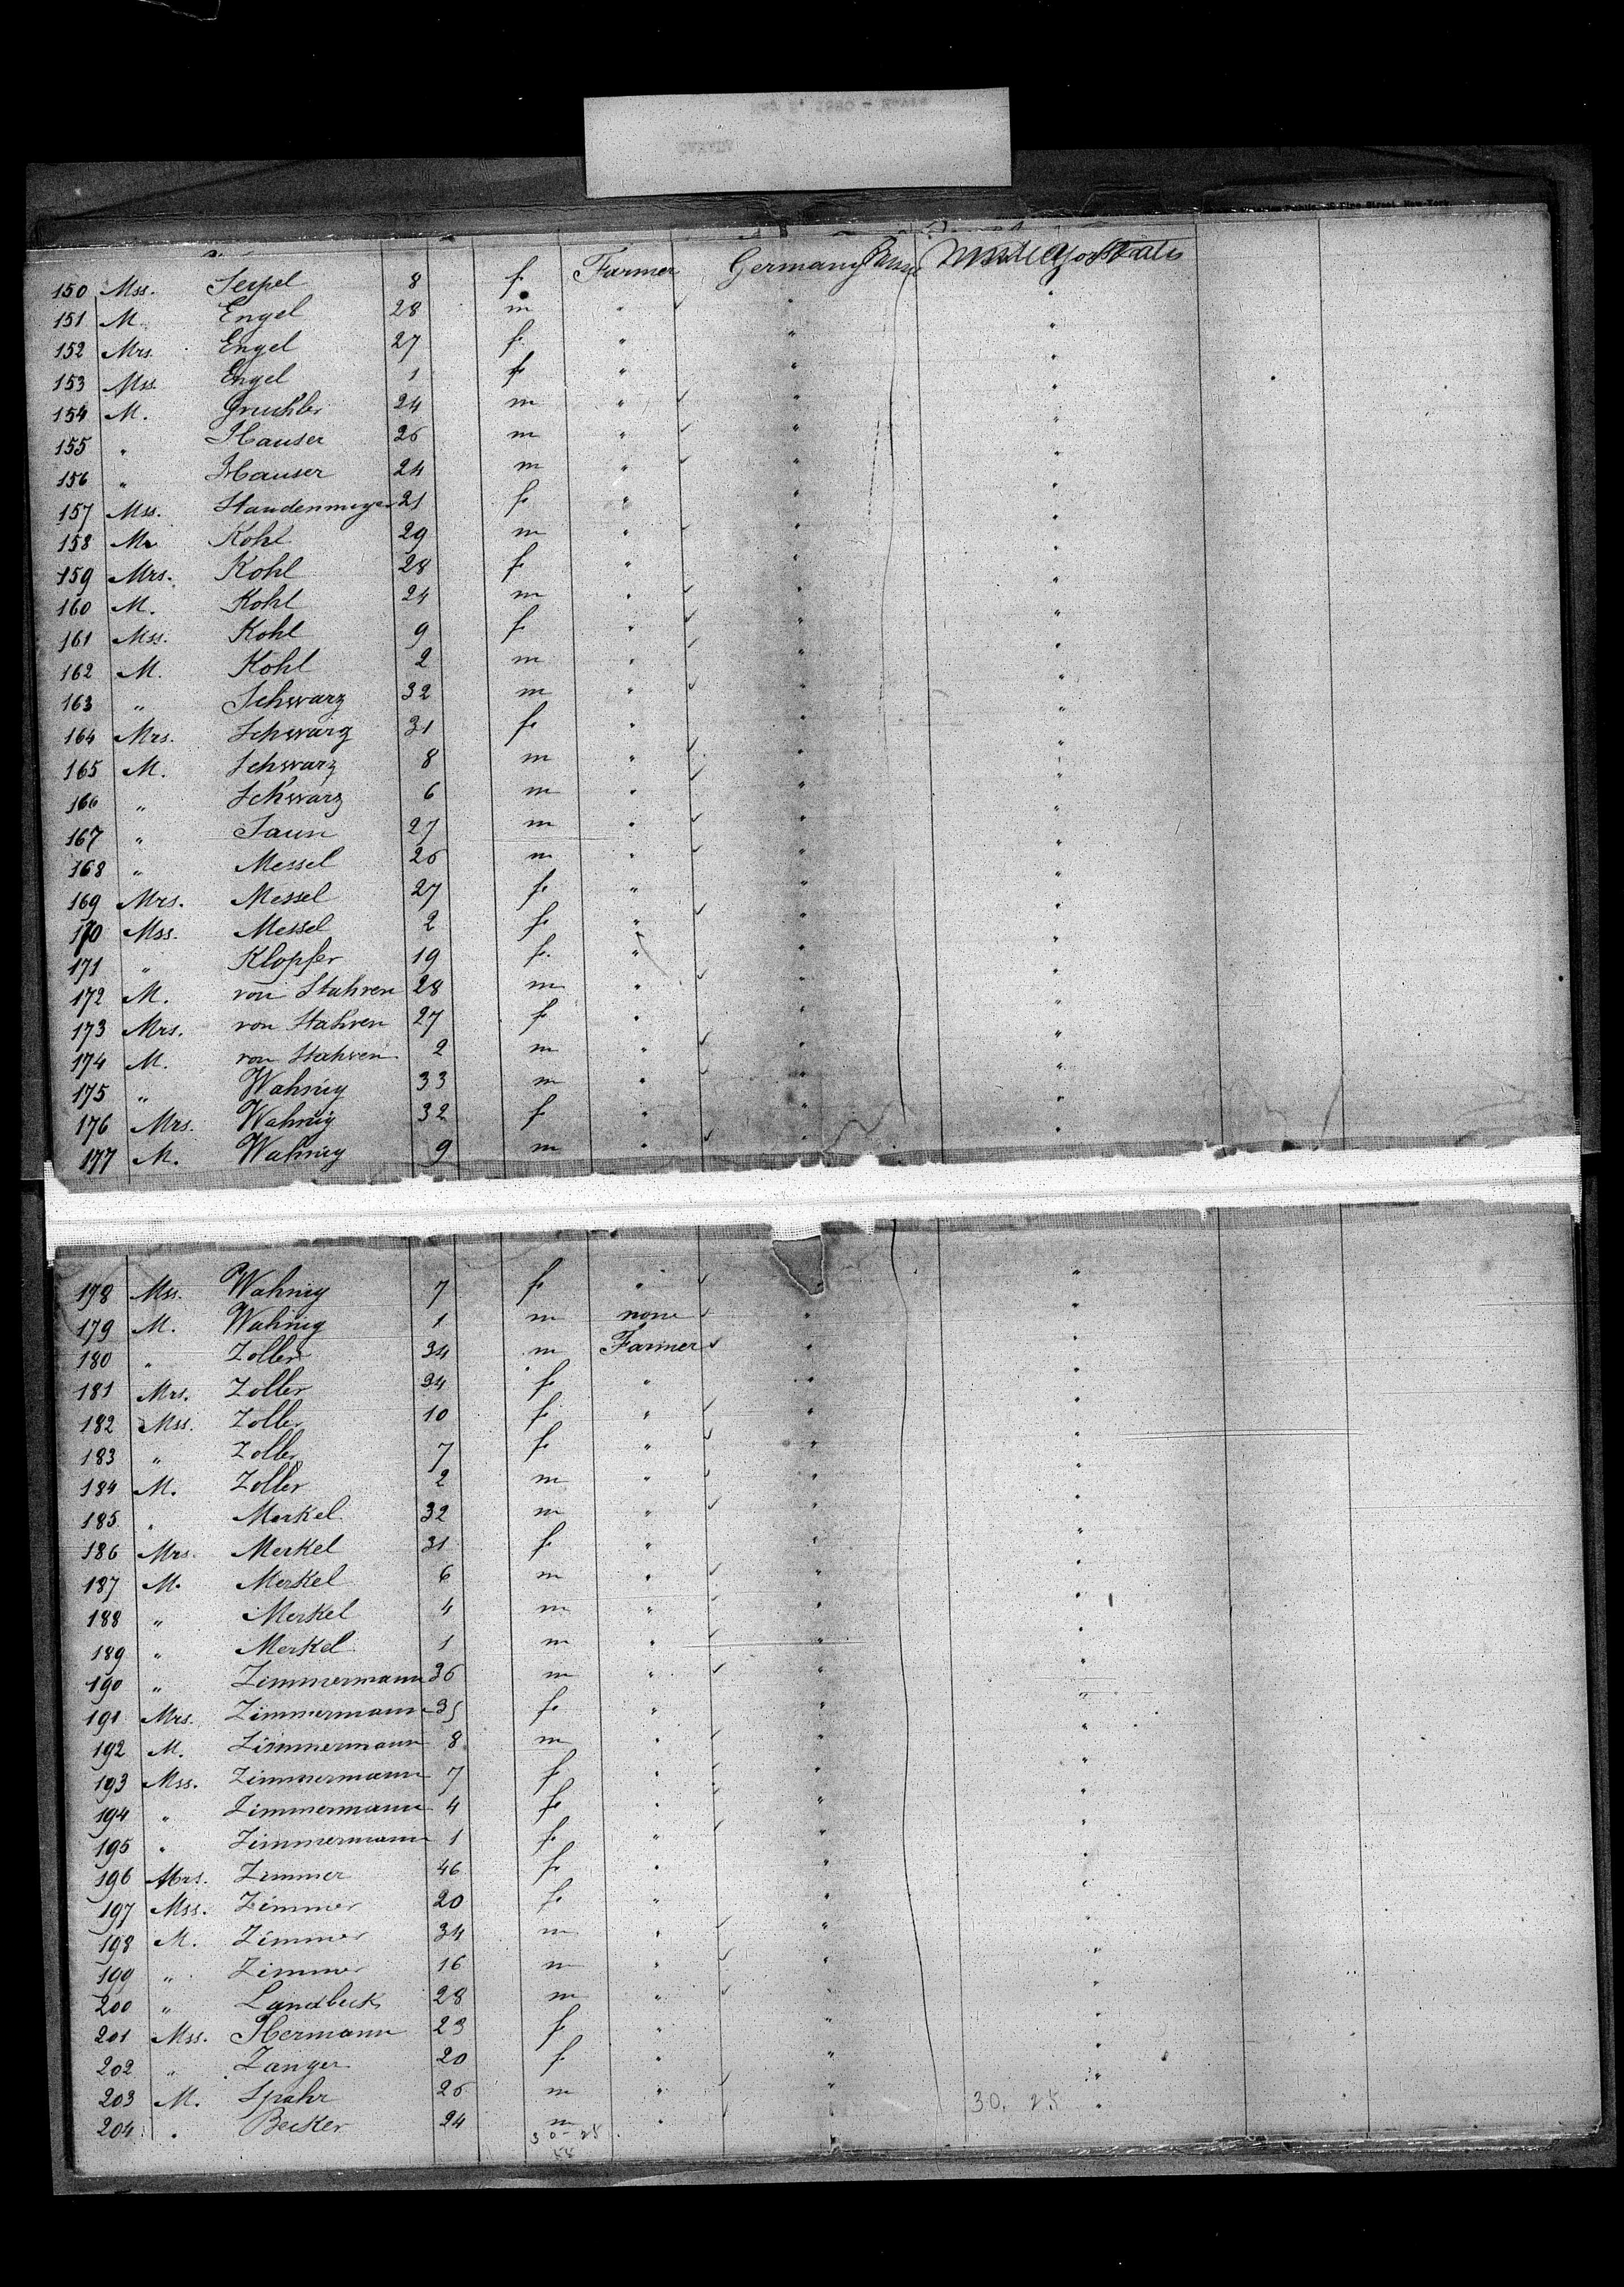 150 Mss. Seipel 8 f. Farmer Germany
151 M. Engel 28 m " "
152 Mrs. Engel 27 f. " "
153 Mss. Engel 1 f " "
154 M. 24 m " "
155 " Hauser 26 m " "
156 " Hauser 24 m " "
157 Mss. 21 f " "
158 Mr Kohl 29 m " "
159 Mrs. Kohl 28 f " "
160 M. Kohl 24 m " "
161 Mss. Kohl 9 f " "
162 M. Kohl 2 m " "
163 " Schwarz 32 m " "
164 Mrs. Schwarz 31 f. " "
165 M. Schwarz 8 m " "
166 " Schwarz 6 m " "
167 " 27 m " "
168 " Messel 26 m " "
169 Mrs. Messel 27 f. " "
170 Mss. Messel 2 f. " "
171 " Klopfer 19 f. " "
172 M. von Stahren 28 m " "
173 Mrs. von Stahren 27 f " "
174 M. von Stahren 2 m " "
175 " Wahnig 33 m " "
176 Mrs. Wahnig 32 f " "
177 M. Wahnig 9 m " "
178 Mss. Wahnig 7 f. " "
179 M. Wahnig 1 m none "
180 " Zoller 34 m Farmer "
181 Mrs. Zoller 34 f. " "
182 Mss. Zoller 10 f. " "
183 " Zoller 7 f. " "
184 M. Zoller 2 m " "
185 " Merkel 32 m " "
186 Mrs. Merkel 31 f. " "
187 M. Merkel 6 m " "
188 " Merkel 4 m " "
189 " Merkel 1 m " "
190 " Zimmermann 36 m " "
191 Mrs. Zimmermann 35 f. " "
192 M. Zimmermann 8 m " "
193 Mss. Zimmermann 7 f " "
194 " Zimmermann 4 f. " "
195 " Zimmermann 1 f. " "
196 Mrs. Zimmer 46 f. " "
197 Mss. Zimmer 20 f. " "
198 M. Zimmer 34 m " "
199 " Zimmer 16 m " "
200 " Landbeck 28 m " "
201 Mss. Hermann 23 f. " "
202 " Zanger 20 f. " "
203 M. Spahr 26 m " "
204 " Becker 24 m " "
30. 25
30-25